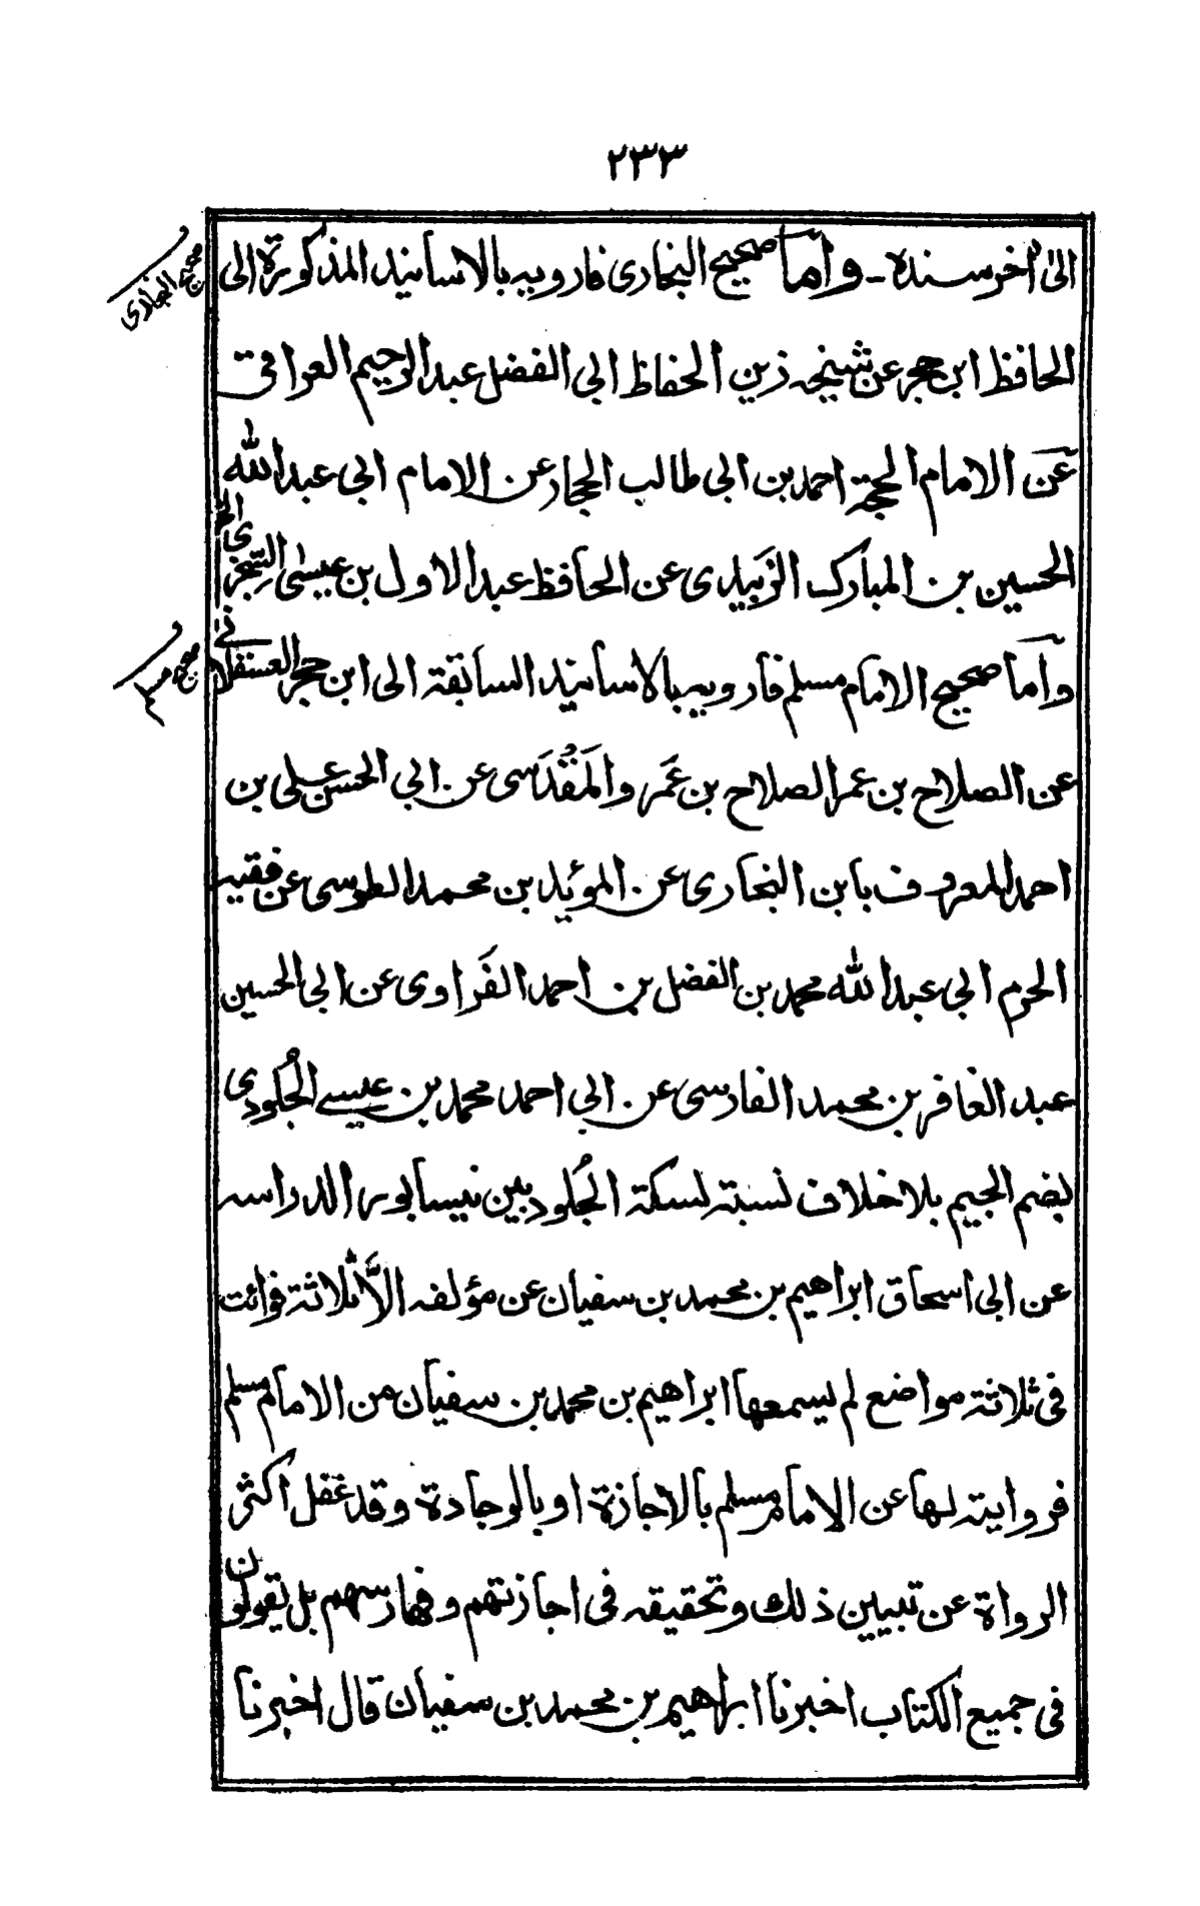 ٢٣٣
الى اخر سنده - واما صحيح البخارى فارويه بالاسانيد المذكورة الى
صحيح البخارى
الحافظ ابن حجر عن شيخه زين الحفاظ ابى الفضل عبد الرحيم العراقى
عن الامام الحجة احمد بن ابى طالب الحجار عن الامام ابى عبد الله
الحسين بن المبارك الزَبيدى عن الحافظ عبد الاول بن عيسى السِّجزى الخ
واما صحيح الامام مسلم فارويه بالاسانيد السابقة الى ابن حجر العسقلانى
صحيح مسلم
عن الصلاح بن عمر الصلاح بن عَمَر والمَقْدَسى عن ابى الحسن على بن
احمد المعروف بابن البخارى عن المؤيد بن محمد الطوسى عن فقيه
الحرم ابى عبد الله محمد بن الفضل بن احمد الفَراوى عن ابى الحسين
عبد الغافر بن محمد الفارسى عن ابى احمد محمد بن عيسے الجُلودى
بضم الجيم بلا خلاف نسبة لسكة الجُلود بين نيسابور الدراسه
عن ابى اسحاق ابراهيم بن محمد بن سفيان عن مؤلفه الاَّ ثلاثة فوائت
فى ثلاثة مواضع لم يسمعها ابراهيم بن محمد بن سفيان من الامام مسلم
فروايته لها عن الامام مسلم بالاجازة او بالوجادة وقد غفل اكثر
الرواة عن تبيين ذلك وتحقيقه فى اجازتهم وفهارسهم بل يقولون
فى جميع الكتاب اخبرنا ابراهيم بن محمد بن سفيان قال اخبرنا